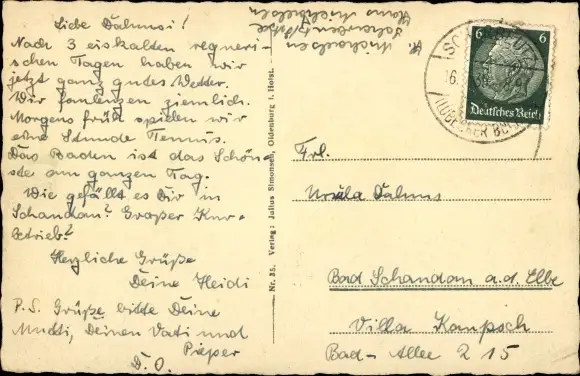 Liebe Dahmsi!
Nach 3 eiskalten regneri-
schen Tagen haben wir
jetzt ganz gutes Wetter.
Wir faulenzen ziemlich.
Morgens früh spielen wir
eine Stunde Tennis.
Das Baden ist das Schön-
ste am ganzen Tag.
Wie gefällt es Dir in
Schandau? Großer Kur-
betrieb?
Herzliche Grüße
Deine Heidi
P.S. Grüße bitte Deine
Mutti, Deinen Vati und
Pieper
D. O.
Nr. 35. Verlag: Julius Simonsen, Oldenburg i. Holst.
H. Michaelsen
Haus Michaelsen
SCHARBEUTZ
(LÜBECKER BUCHT)
6 6
Deutsches Reich
Frl.
Ursula Dahms
Bad Schandau a.d. Elbe
Villa
Bad-Allee 215